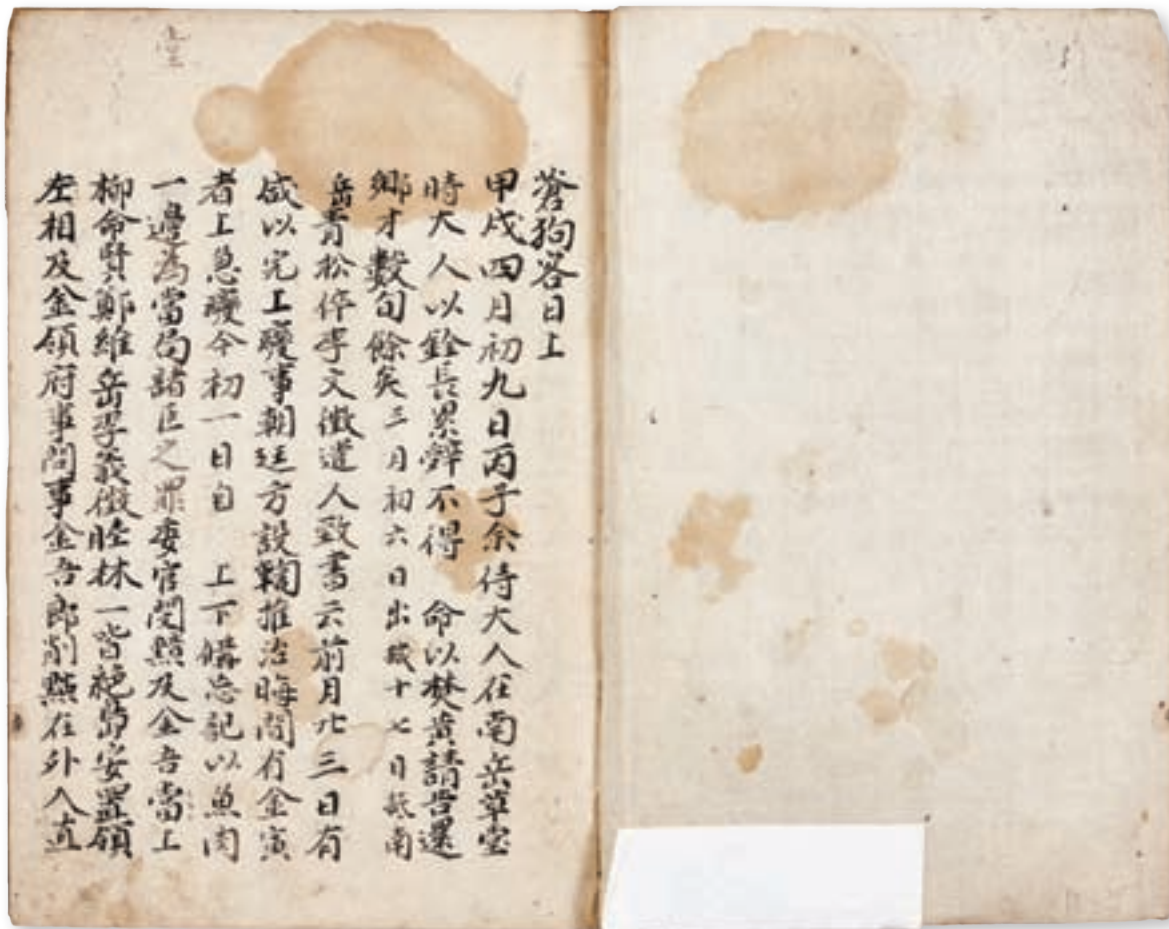 蒼狗客日上
甲戌四月初九日丙子余侍大人在南岳草堂
時大人以銓長累辭不得　命以焚黃請告還
鄉才數旬餘矣三月初六日出城十七日抵南
岳青松倅李文徵遣人致書云前月廿三日有
咸以完上變事朝廷方設鞫推治晦間有金寅
者上急變今初一日自　上下備忘記以魚肉
一邊為當局諸臣之罪委官閔黯及金吾當上
柳命賢鄭維岳李義徵睦林一皆絶島安置領
左相及金領府事問事金吾郎削黜在外入直